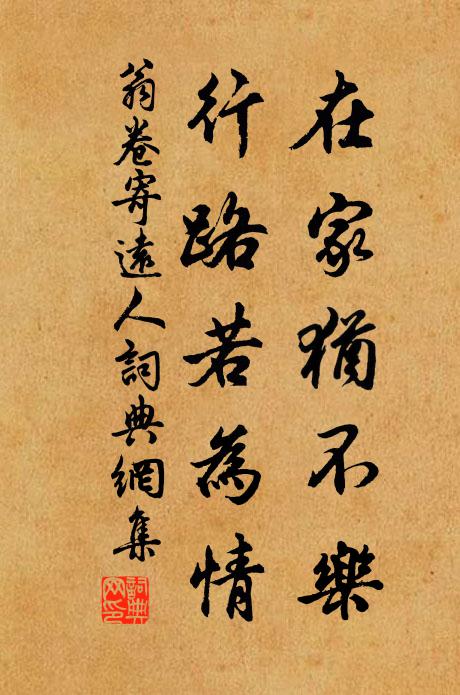 在家猶不樂
行路若為情
翁卷寄遠人詞典網集
詞典網印